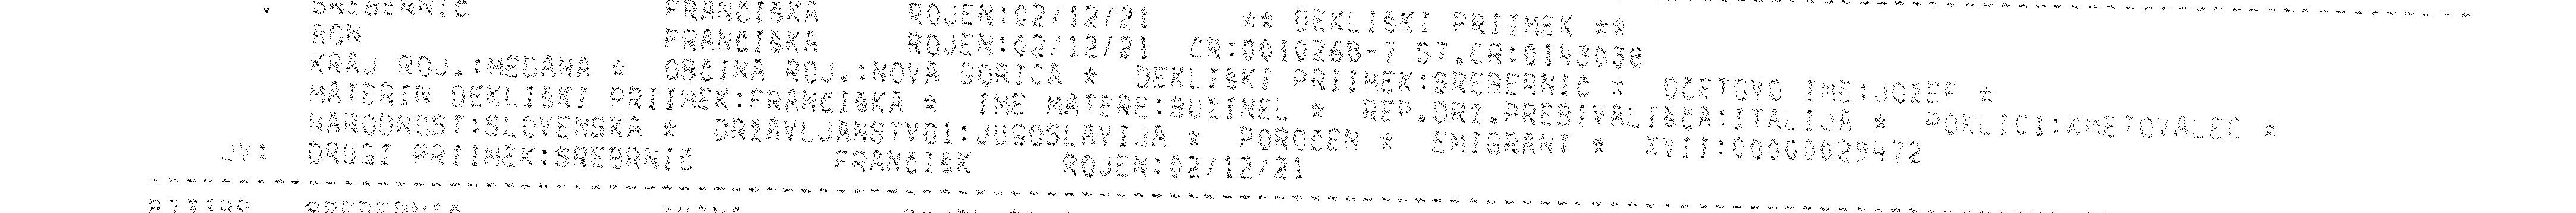 SREBERNIČ FRANČIŠKA ROJEN:02/12/21 ** DEKLIŠKI PRIIMEK **
BON FRANČIŠKA ROJEN:02/12/21 CR:0010268-7 ST.CR:0143038
KRAJ ROJ.:MEDANA * OBČINA ROJ.:NOVA GORICA * DEKLIŠKI PRIIMEK:SREBERNIČ * OČETOVO IME:JOŽEF *
MATERIN DEKLIŠKI PRIIMEK:FRANČIŠKA * IME MATERE:BUŽINEL * REP.DRŽ.PREBIVALIŠČA:ITALIJA * POKLIC1:KMETOVALEC *
NARODNOST:SLOVENSKA * DRŽAVLJANSTVO1:JUGOSLAVIJA * POROČEN * EMIGRANT * XVII:00000029472
JV: DRUGI PRIIMEK:SREBRNIČ FRANČIŠK ROJEN:02/12/21
SREBERNIČ